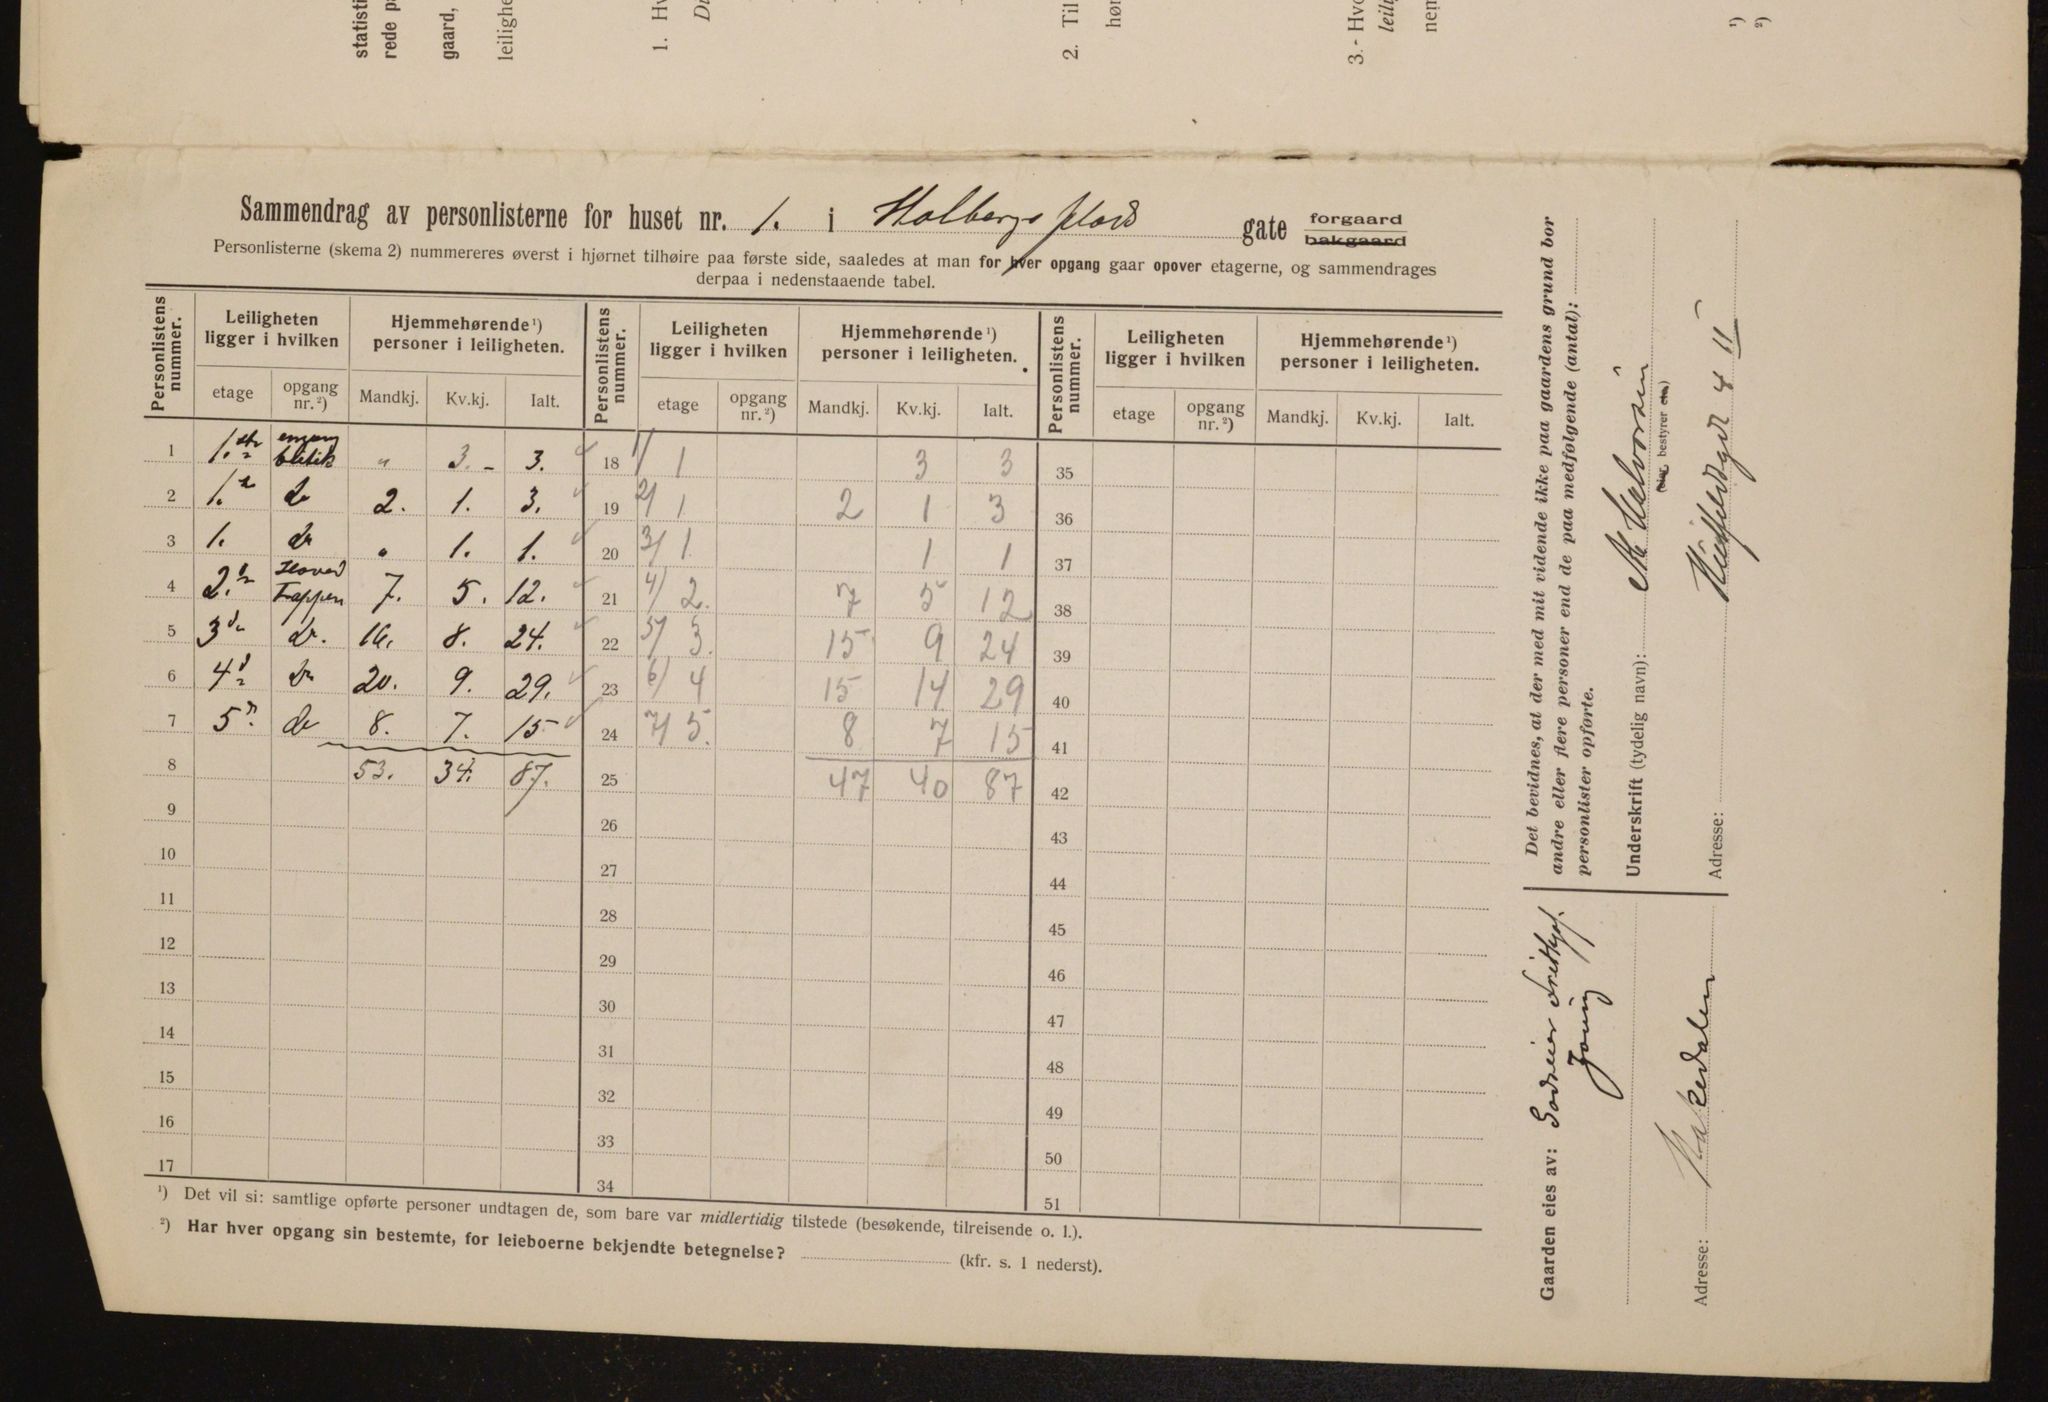 statisti
rede pa
gaard,
leilighe
1. Hv
2. Til
hør
3. Hvo
leili
nem
¹)
²)
Sammendrag av personlisterne for huset nr. 1. i Holbergs plads gate forgaard bakgaard
Personlisterne (skema 2) nummereres øverst i hjørnet tilhøire paa første side, saaledes at man for hver opgang gaar opover etagerne, og sammendrages
derpaa i nedenstaaende tabel.
Personlistens nummer. Leiligheten ligger i hvilken Hjemmehørende¹) personer i leiligheten. Personlistens nummer. Leiligheten ligger i hvilken Hjemmehørende¹) personer i leiligheten. Personlistens nummer. Leiligheten ligger i hvilken Hjemmehørende¹) personer i leiligheten.
etage opgang nr.²) Mandkj. Kv.kj. Ialt. etage opgang nr.²) Mandkj. Kv.kj. Ialt. etage opgang nr.²) Mandkj. Kv.kj. Ialt.
1 1. butik " 3. - 3. 18 1/ 1 3 3 35
2 1. do 2. 1. 3. 19 2/ 1 2 1 3 36
3 1. do . 1. 1. 20 3/ 1 1 1 37
4 2. Hoved Trappen 7. 5. 12. 21 4/ 2. 7 5 12 38
5 3 do. 16. 8. 24. 22 5/ 3. 15 9 24 39
6 4 do 20. 9. 29. 23 6/ 4 15 14 29 40
7 5 do 8. 7. 15 24 7/ 5. 8 7 15 41
8 53. 34. 87. 25 47 40 87 42
9 26 43
10 27 44
11 28 45
12 29 46
13 30 47
14 31 48
15 32 49
16 33 50
17 34 51
¹) Det vil si: samtlige opførte personer undtagen de, som bare var midlertidig tilstede (besøkende, tilreisende o. l.).
²) Har hver opgang sin bestemte, for leieboerne bekjendte betegnelse? (kfr. s. 1 nederst).
Det bevidnes, at der med mit vidende ikke paa gaardens grund bor
andre eller flere personer end de paa medfølgende (antal):
personlister opførte.
Underskrift (tydelig navn): Halvorsen
(eier, bestyrer etc.)
Adresse: Huitfeldtgt 4 II
Gaarden eies av: Godseier
Adresse: Hakedalen